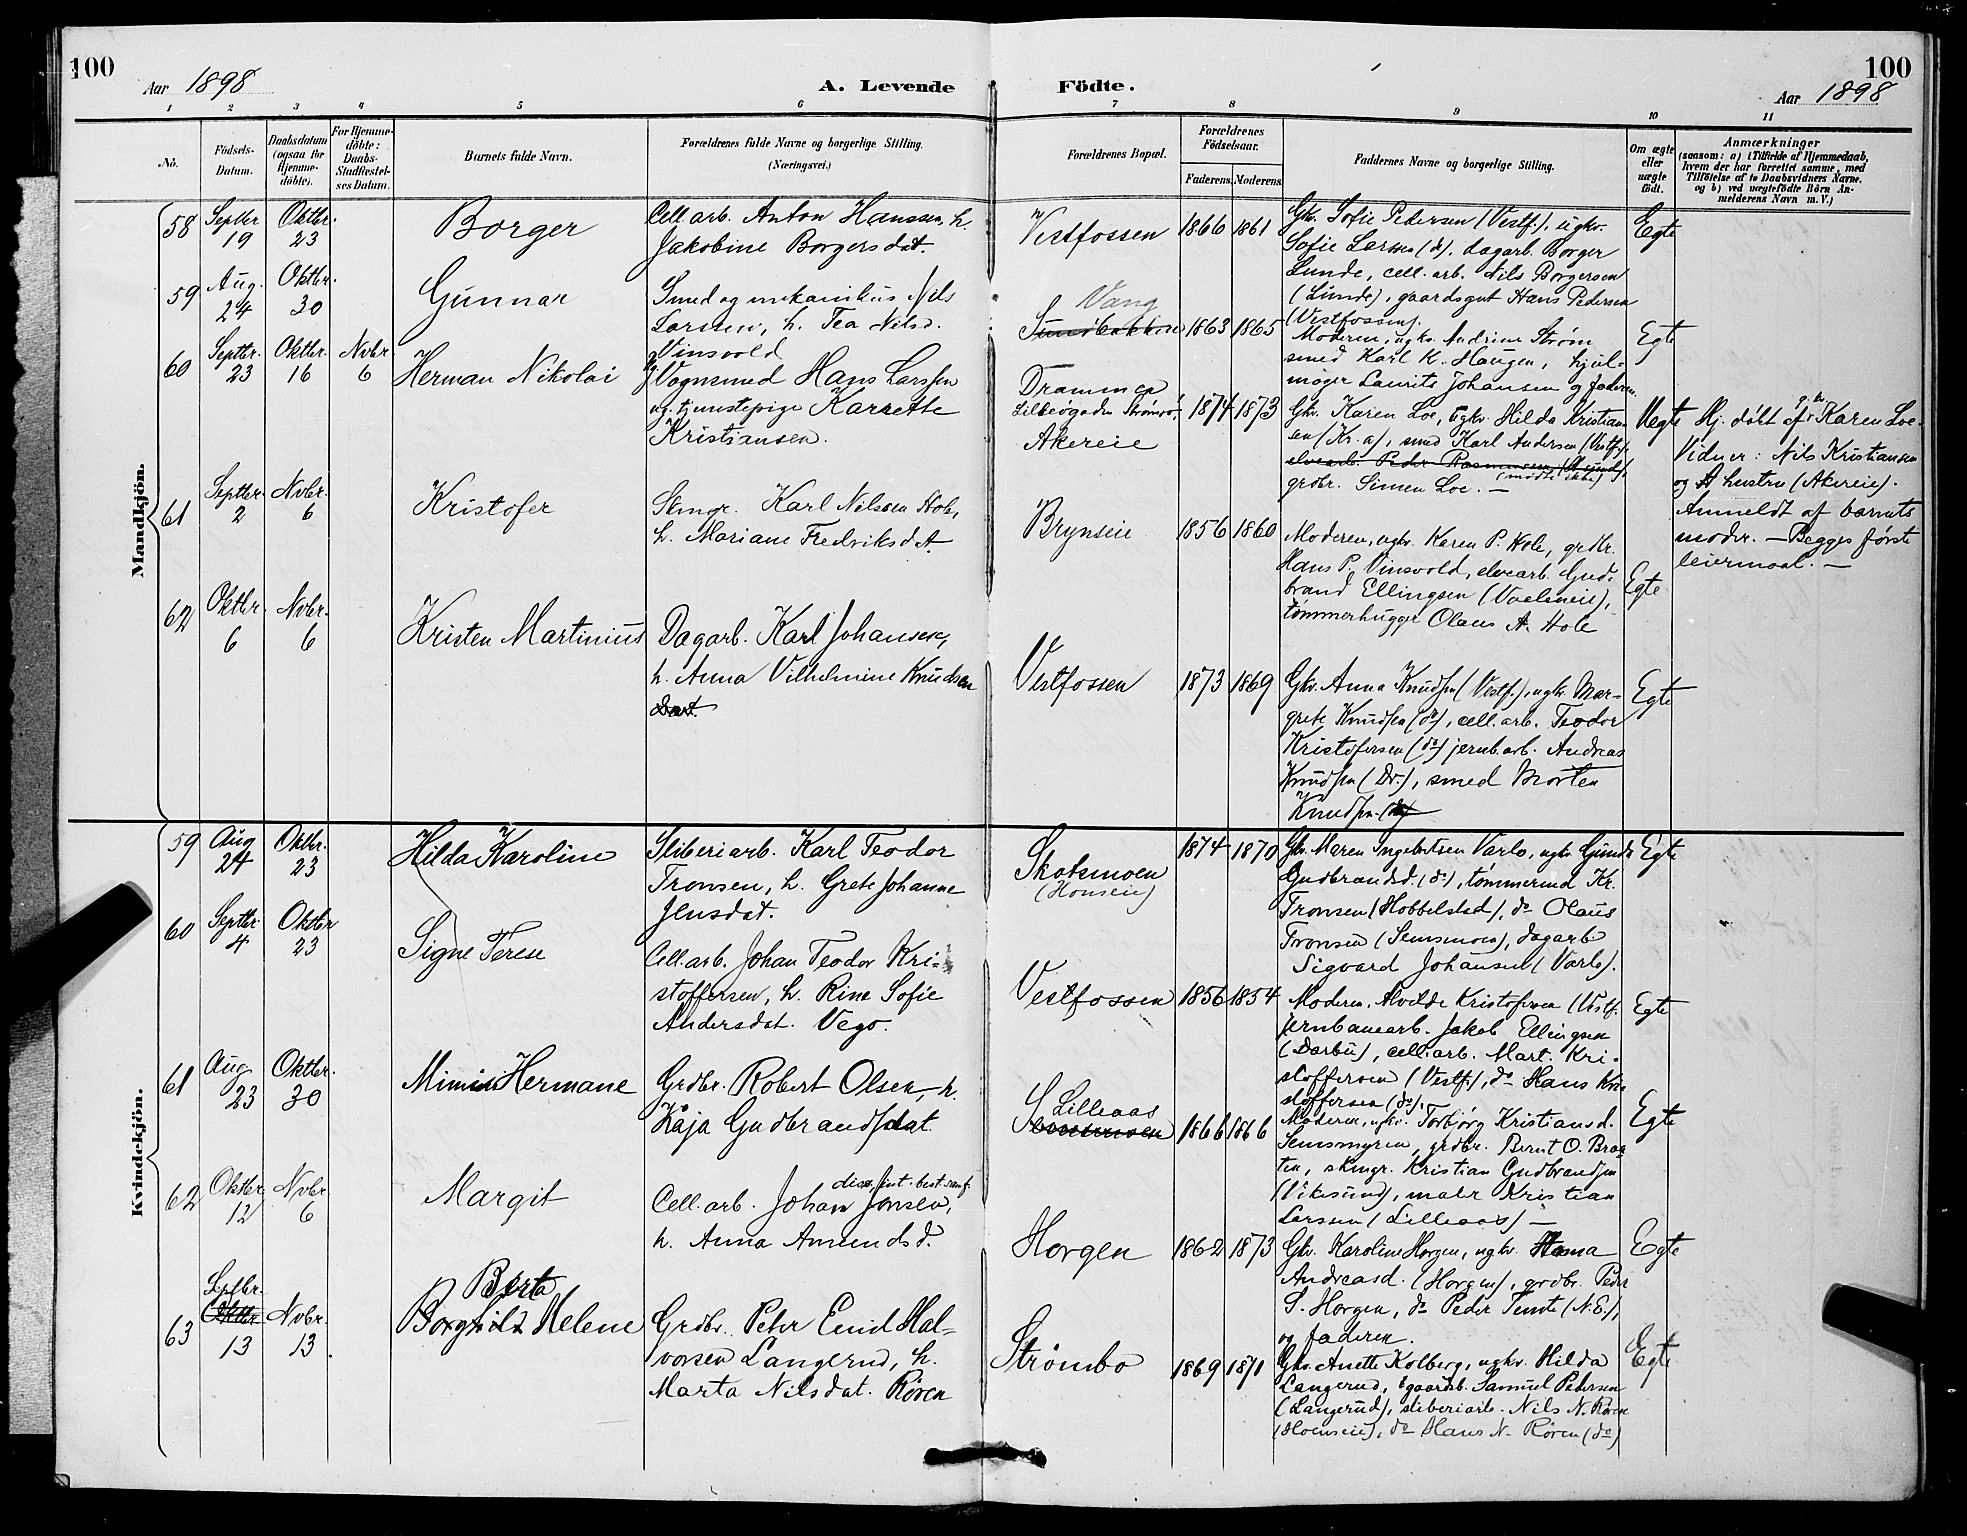 100
Aar 1898
A. Levende
Födte.
100
Aar 1898
1 2 3 4 5 6 7 8 9 10 11
No.
Födsels-
Datum.
Daabsdatum
(ogsaa for
Hjemme-
döbte).
For Hjemme-
döbte:
Daabs-
Stadfæstel-
ses Datum.
Barnets fulde Navn.
Forældrenes fulde Navne og borgerlige Stilling.
(Næringsvei.)
Forældrenes Bopæl.
Forældrenes
Födselsaar.
Faderens. Moderens.
Faddernes Navne og borgerlige Stilling.
Om ægte
eller
uægte
födt.
Anmærkninger
(saasom: a) i Tilfælde af Hjemmedaab,
hvem der har forrettet samme, med
Tilföielse af to Daabsvidners Navne.
og b) ved uægtefödte Börn An-
melderens Navn m. V.)
Mandkjön.
58 Septbr. 19 Oktbr. 23 Borger
Cell.arb. Anton Hanssen, h.
Jakobine Borgersdat.
Vestfossen 1866 1861
Gkv. Sofie Pedersen (Vestf.), ugkv.
Sofie Larsen (do), dagarb. Borger
Lunde, cell.arb. Nils Borgersen
(Lunde), gaardsgut Hans Pedersen
(Vestfossen).
Egte
59 Aug. 24 Oktbr. 30 Gunnar
Smed og mekanikus Nils
Larssen, h. Tea Nilsd.
Vinsvold
Vang
Sundbakken 1863 1865
Moderen, ugkv. Andrine Strøm
smed Karl K. Haugen, hjul-
mager Laurits Johansen og faderen.
Egte
60 Septbr. 23 Oktbr. 16 Novbr 6 Herman Nikolai
Vognsmed Hans Larssen
og tjenestepige Karette
Kristiansen.
Drammen
Lilleøgaden Strømsø
Akereie
1874 1873
Gkv. Karen Loe, ugkv. Hilda Kristian-
sen (Kr.a), smed Karl Andersen (Vestf.),
elvearb. Peder Rasmussen
(mødte ikke)
grdbr. Simen Loe. —
Uegte
Hj. døbt af Karen Loe.
Vidner: Nils Kristiansen
og hustru (Akereie).
Anmeldt af barnets
moder. — Begges første
leiermaal. —
61 Septbr. 2 Novbr. 6 Kristofer
Skmgr. Karl Nilssen Hole,
h. Mariane Fredriksdt.
Brynseie 1856 1860
Moderen, ugkv. Karen P. Hole, grdbr.
Hans P. Vinsvold, elvearb. Gud-
brand Ellingsen (Voelneie),
tømmerhugger Olaus A. Hole
Egte
62 Oktbr. 6 Novbr. 6 Kristen Martinius
Dagarb. Karl Johansen,
h. Anna Vilhelmine Knudsen
Dat.
Vestfossen 1873 1869
Gkv. Anna Knudsen (Vestf.), ugkv. Mar-
grete Knudsen (do), cell.arb. Teodor
Kristofersen (do) jernb.arb. Andreas
Knudsen (Dr.), smed Morten
Knudsen (do)
Egte
Kvindekjön.
59 Aug. 24 Oktbr. 23 Hilda Karoline
Sliberiarb. Karl Teodor
Tronsen, h. Grete Johanne
Jensdat.
Skotsmoen
(Honseie)
1874 1870
Gkv. Maren Ingebretsen Varlo, ugkv. Gunda
Gudbrandsd. (do), tømmermd Kr.
Tronsen (Hobbelstad), do Olaus
Tronsen (Semsmoen), dagarb.
Sigvard Johansen (Varlo).
Egte
60 Septbr. 4 Oktbr 23 Signe Terese
Cell.arb. Johan Teodor Kri-
stoffersen, h. Rine Sofie
Andersdat. Vego.
Vestfossen 1856 1854
Moderen, Alvilde Kristofersen (Vestf.
jernbanearb. Jakob Ellingsen
(Darbu), cell.arb. Mart. Kri-
stoffersen (Vestf.), do Hans Kri-
stoffersen (do).
Egte
61 Aug. 23 Oktbr. 30 Mimi Hermane
Grdbr. Robert Olsen, h.
Kaja Gudbrandsdat.
Lilleaas
1866 1866
Moderen, ugkv. Torbjørg Kristiansd.
Semsmyren, grdbr. Bernt O. Braa-
ten, skmgr. Kristian Gudbrandsen
(Vikesund), maler Kristian
Larssen (Lilleaas) —
Egte
62 Oktbr. 12 Novbr. 6 Margit
Cell.arb. Johan Jonsen,
h. Anna Amundsd.
Horgen 1862 1873
Gkv. Karoline Horgen, ugkv.
Andreasd. (Horgen), grdbr. Peder
S. Horgen, do Peder Temte (N.E.),
og faderen.
Egte
63 Septbr.
Oktbr
13 Novbr. 13.
Berta
Borghild Helene
Grdbr. Peter Emil Hal-
vorsen Langerud, h.
Marta Nilsdat. Røren
Strømbo 1869 1871
Gkv. Anette Kolberg, ugkv. Hilda
Langerud, gaardb. Samuel Pedersen
(Langerud), sliberiarb. Nils N. Røren
(Hoenseie), do Hans N. Røren (do)
Egte